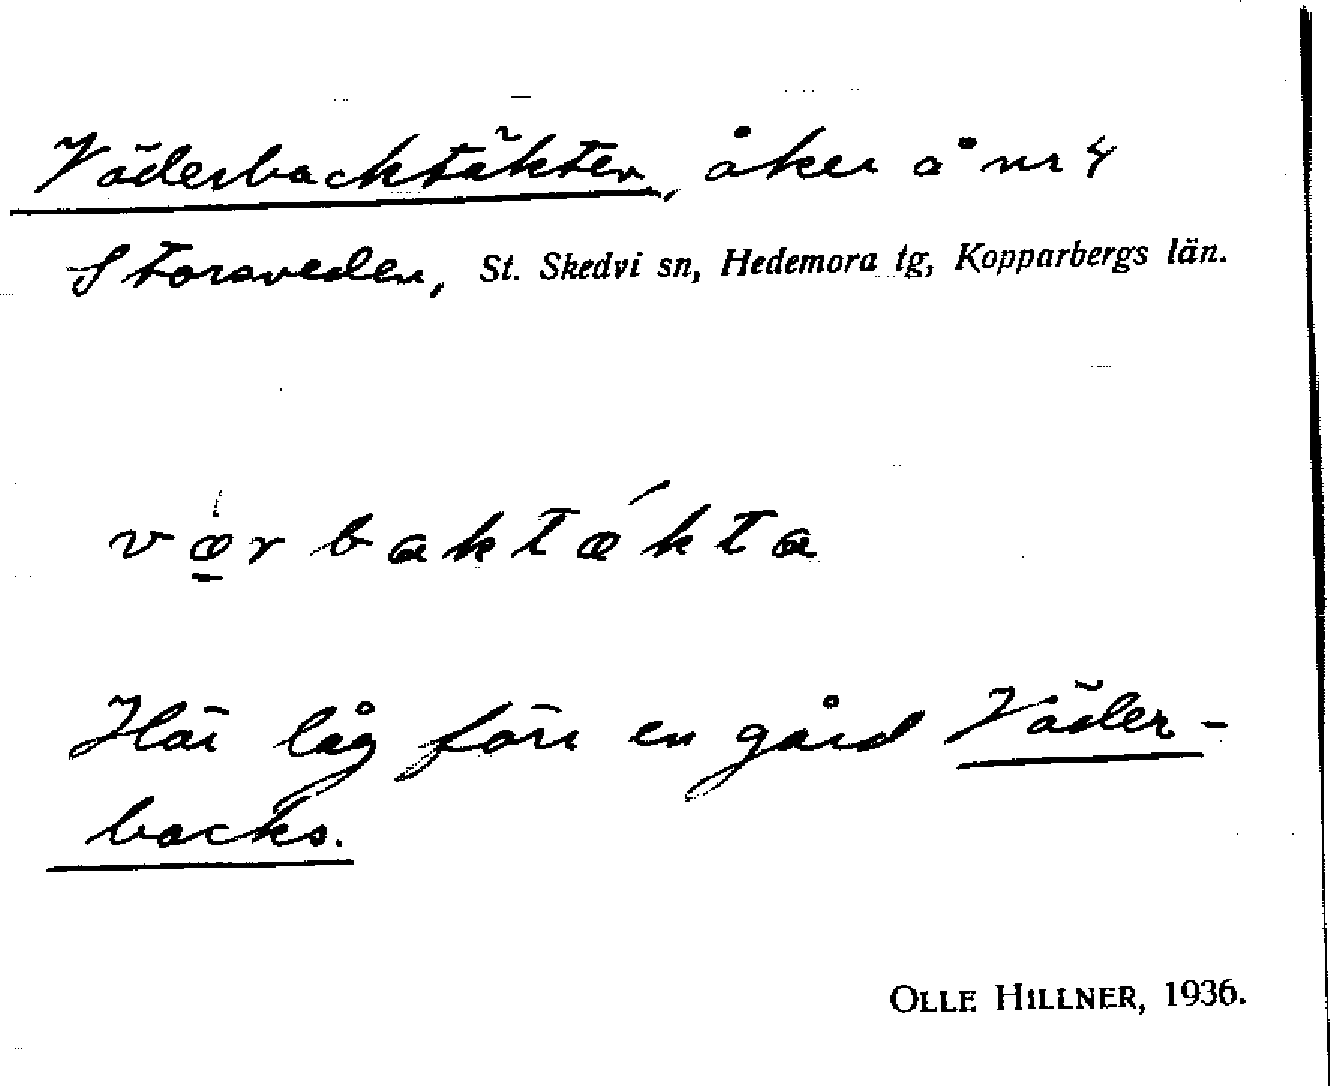 Väderbacktäkten, åker å nr 4
Storsveden, St. Skedvi sn, Hedemora tg, Kopparbergs län.
værbaktækta
Här låg förr en gård Väder-
backs.
OLLE HILLNER, 1936.